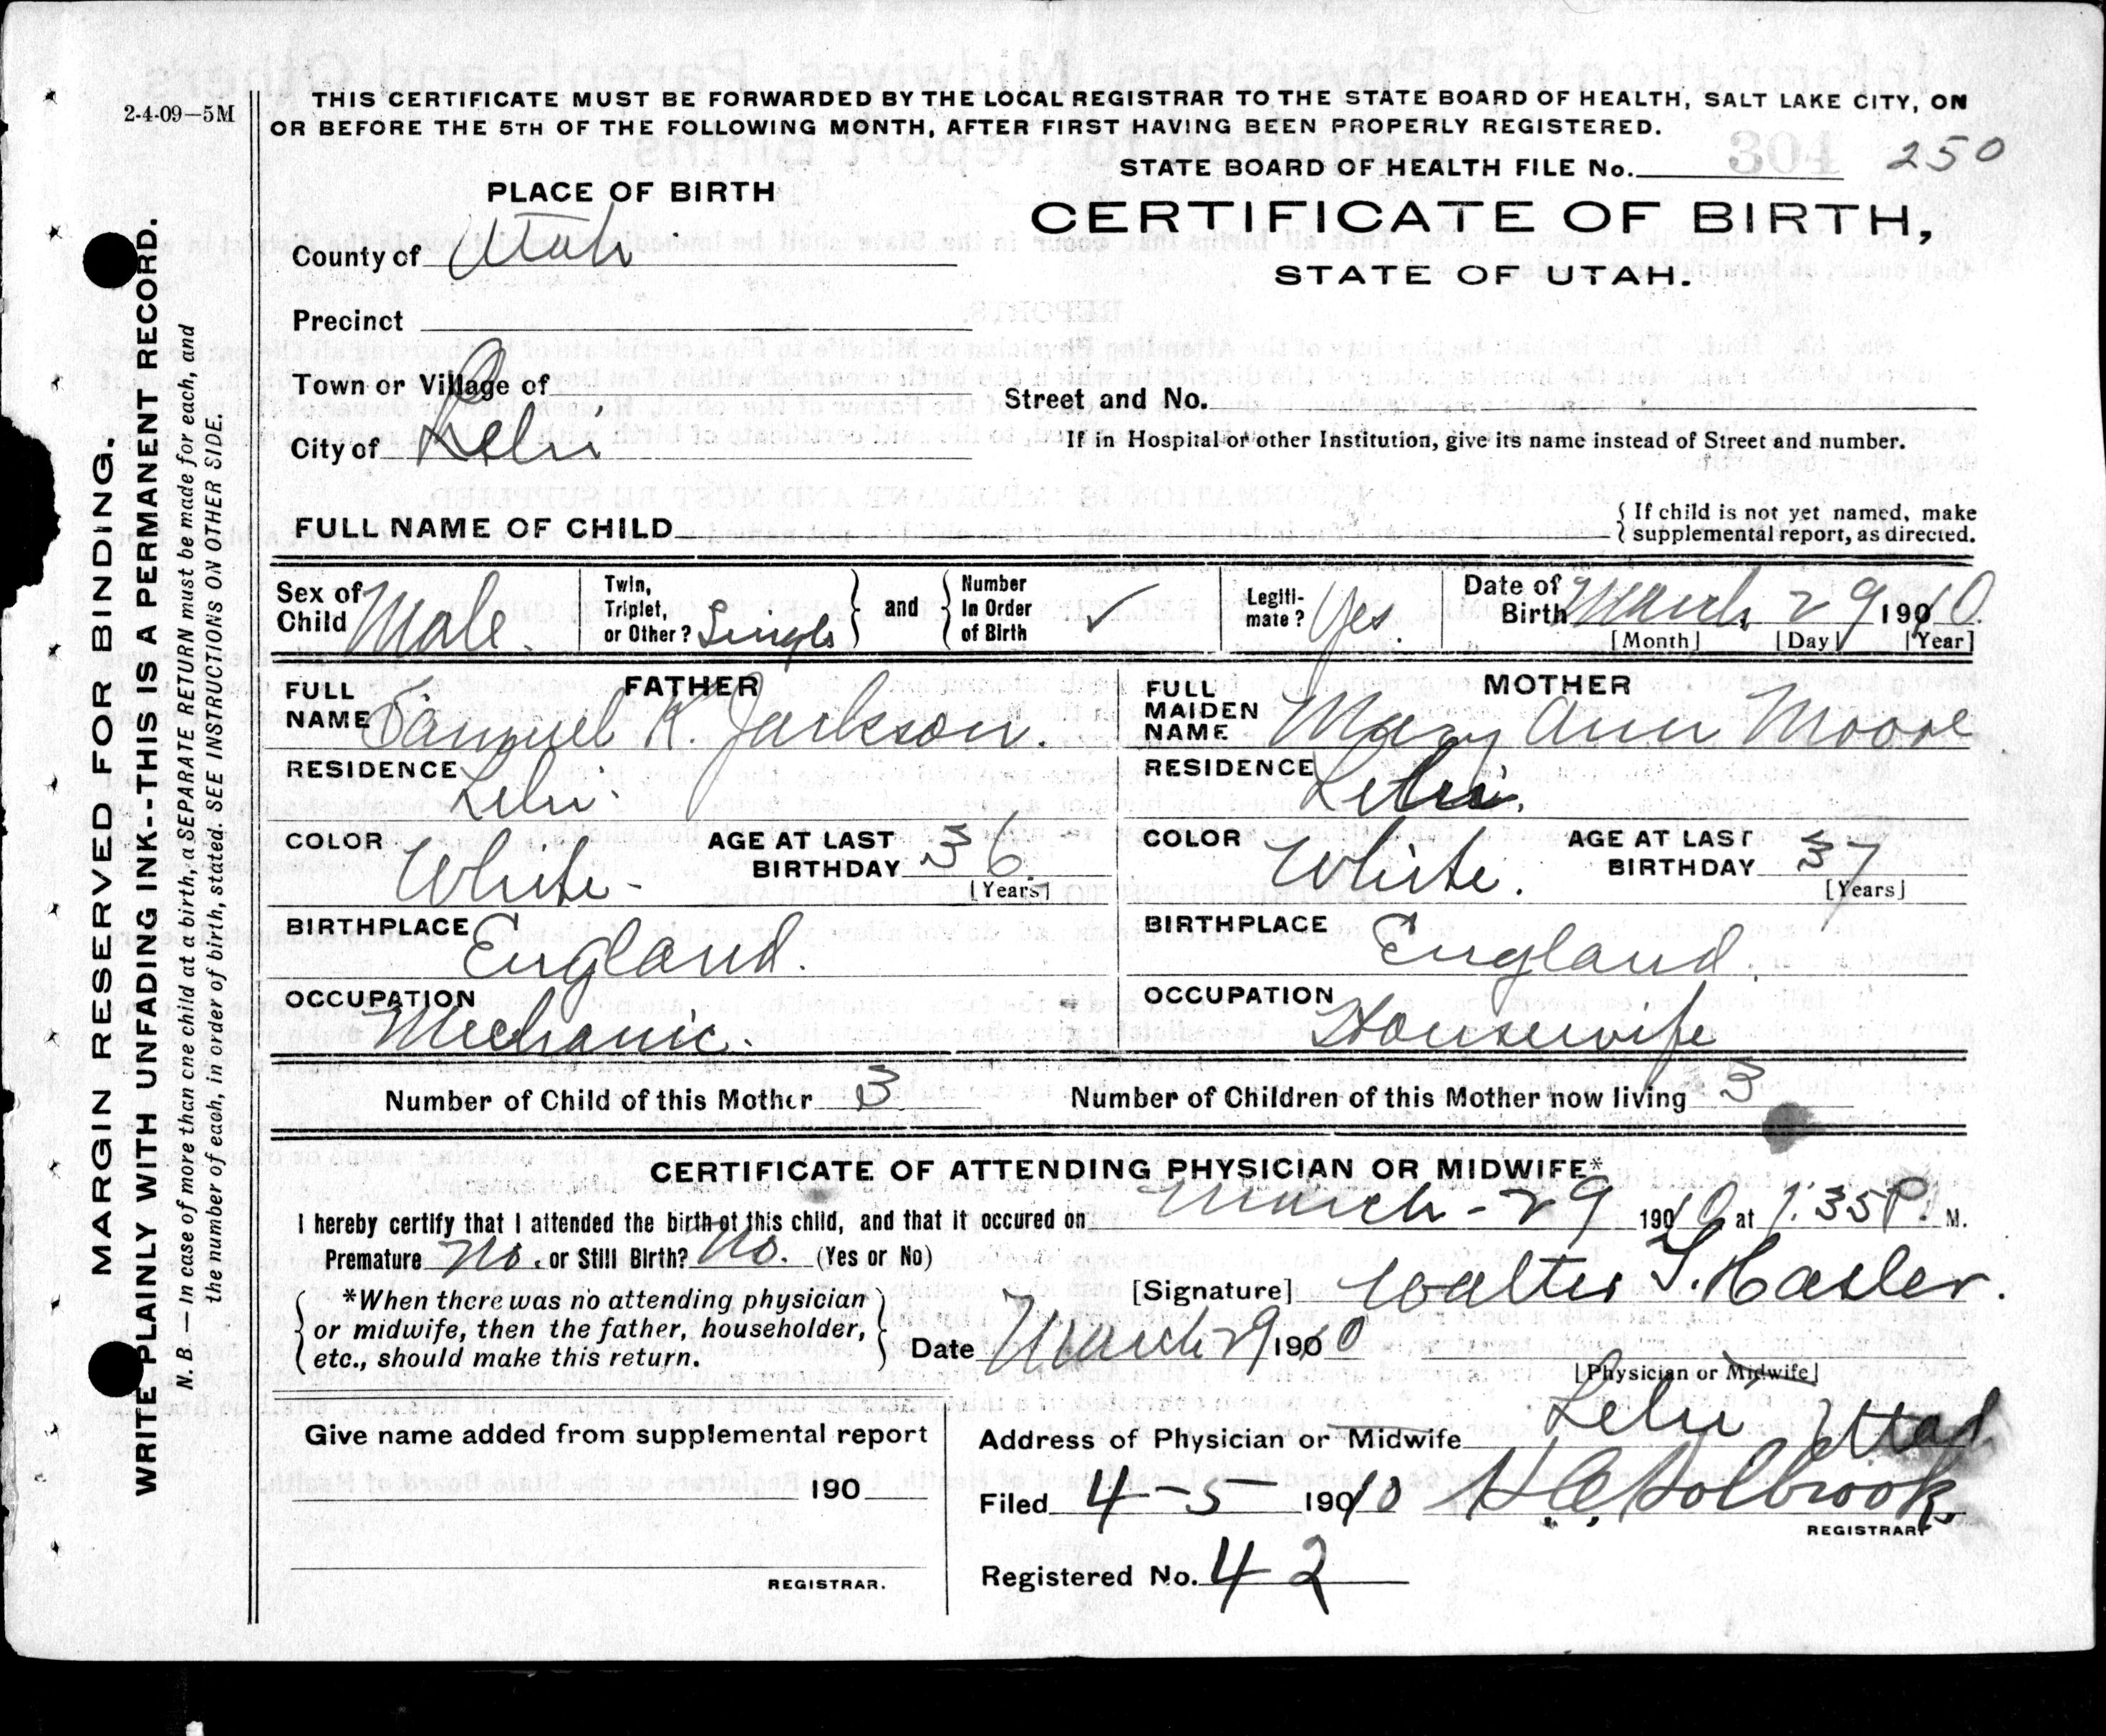 2-4-09—5M
THIS CERTIFICATE MUST BE FORWARDED BY THE LOCAL REGISTRAR TO THE STATE BOARD OF HEALTH, SALT LAKE CITY, ON
OR BEFORE THE 5TH OF THE FOLLOWING MONTH, AFTER FIRST HAVING BEEN PROPERLY REGISTERED.
STATE BOARD OF HEALTH FILE No. 304 250
PLACE OF BIRTH
CERTIFICATE OF BIRTH,
STATE OF UTAH.
County of Utah
Precinct
Town or Village of
City of Lehi
Street and No.
If in Hospital or other Institution, give its name instead of Street and number.
FULL NAME OF CHILD
{ If child is not yet named, make
{ supplemental report, as directed.
Sex of Child Male.
Twin, Triplet, or Other? Single } and { Number In Order of Birth ✓
Legiti-mate? Yes.
Date of Birth March 29 1910.
[Month] [Day] [Year]
FATHER
FULL NAME Samuel K. Jackson.
RESIDENCE Lehi.
COLOR White- AGE AT LAST BIRTHDAY 36.
[Years]
BIRTHPLACE England.
OCCUPATION Mechanic.
MOTHER
FULL MAIDEN NAME Mary Ann Moore
RESIDENCE Lehi.
COLOR White. AGE AT LAST BIRTHDAY 37
[Years]
BIRTHPLACE England.
OCCUPATION Housewife
Number of Child of this Mother 3
Number of Children of this Mother now living 3
CERTIFICATE OF ATTENDING PHYSICIAN OR MIDWIFE*
I hereby certify that I attended the birth of this child, and that it occured on March - 29 1910 at 1:35 P. M.
Premature No. or Still Birth? No. (Yes or No)
[Signature] Walter T. Hasler.
{ *When there was no attending physician }
{ or midwife, then the father, householder, }
{ etc., should make this return. }
Date March 29 1910
[Physician or Midwife]
Give name added from supplemental report
190
REGISTRAR.
Address of Physician or Midwife Lehi Utah
Filed 4-5 1910 H C Holbrook
REGISTRAR
Registered No. 42
MARGIN RESERVED FOR BINDING.
WRITE PLAINLY WITH UNFADING INK--THIS IS A PERMANENT RECORD.
N. B. — In case of more than one child at a birth, a SEPARATE RETURN must be made for each, and
the number of each, in order of birth, stated. SEE INSTRUCTIONS ON OTHER SIDE.